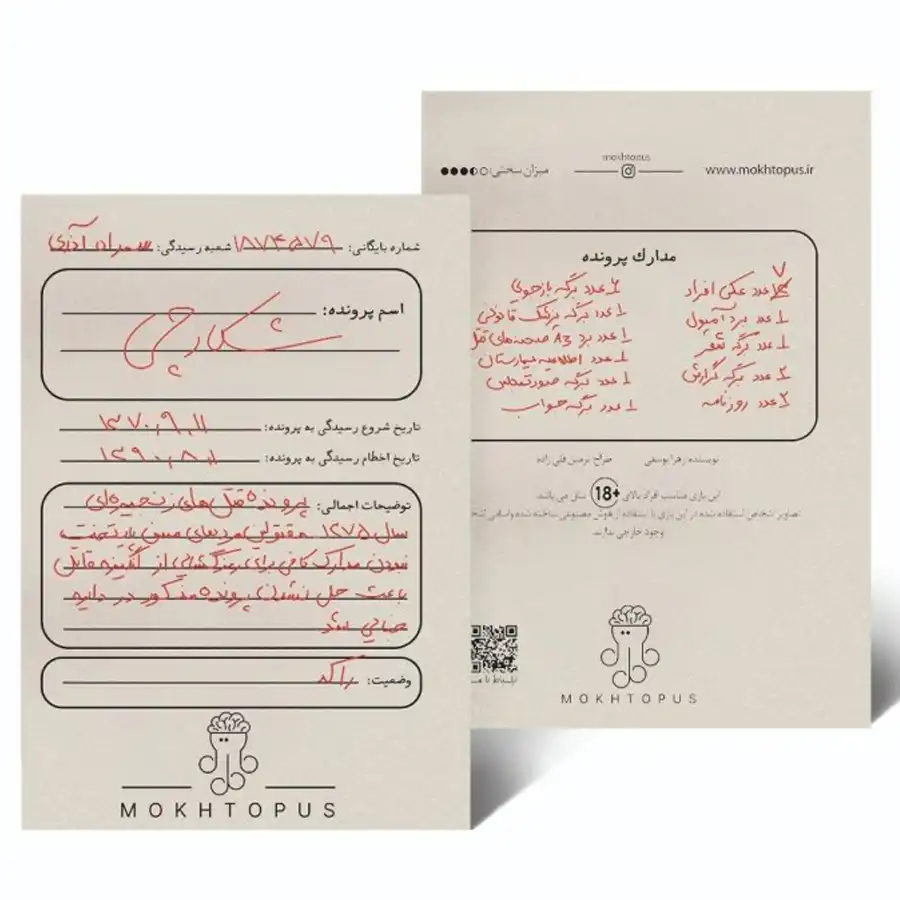 شماره بایگانی: ۱۸۷۴۵۷۹ شعبه رسیدگی:
اسم پرونده:
شکارچی
تاریخ شروع رسیدگی به پرونده: ۱۳۷۰,۹,۱۱
تاریخ اخطام رسیدگی به پرونده:
توضیحات اجمالی: پرونده قتل‌های زنجیره‌ای
سال مقتولین مردهای مسن پایتخت
نبودن مدارک کافی برای رمزگشایی از انگیزه قاتل
باعث حل نشدن پرونده مذکور در دایره
جنایی شد
وضعیت: راکد
MOKHTOPUS
mokhtopus
میزان سختی:
www.mokhtopus.ir
مدارک پرونده
۷ عدد عکس افراد
۱ عدد برد آمپول
۱ عدد برگه شعر
۲ عدد برگه گزارش
۲ عدد روزنامه
۲ عدد برگه بازجویی
۱ عدد برگه پزشک قانونی
۱ عدد برد A3 صحنه‌های قتل
۱ عدد اطلاعیه بیمارستان
۱ عدد برگه صورتمجلس
۱ عدد برگه جواب
نویسنده: زهرا یوسفی طراح: نرجس قلی زاده
این بازی مناسب افراد بالای 18+ سال می باشد
تصاویر اشخاص استفاده شده در این بازی با استفاده از هوش مصنوعی ساخته شده و اسامی
وجود خارجی ندارند.
ارتباط با
MOKHTOPUS